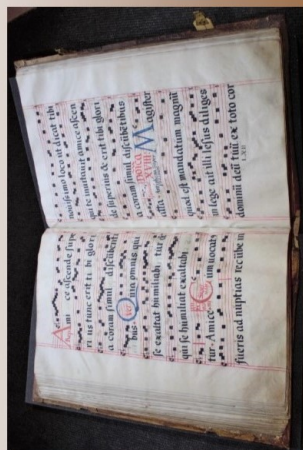 Ami ce ascende supe
ri us tunc erit ti bi glori
a coram simul discūbenti
bus. Quia omnis qui
se exaltat humiliabi tur &
qui se humiliat exaltabi
tur. Amice Cum uocatꝰ
fueris ad nuptias recūbe in
nouissimo loco ut dicat tibi
qui te inuitauit amice ascen
de superius & erit tibi glori
a coram simul discūbētibus
alla. XVIII. Magister
quod est mandatum magnū
in lege ait illi Iesus diliges
dominū deū tuū ex toto cor